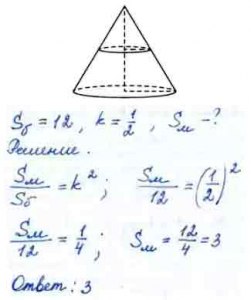 Sб = 12, k = 1/2, Sм - ?
Решение.
Sм/Sб = k²; Sм/12 = (1/2)²
Sм/12 = 1/4; Sм = 12/4 = 3
Ответ: 3